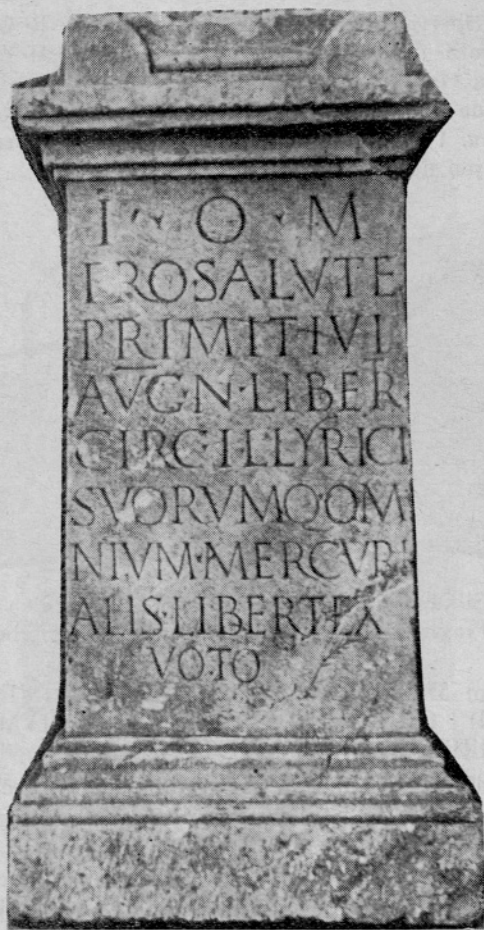 I · O · M
PRO·SALVTE
PRIMITIVI
AVG·N·LIBER
CIRC·ILLYRICI
SVORVMQ·OM
NIVM·MERCVRI
ALIS·LIBERT·EX
VOTO